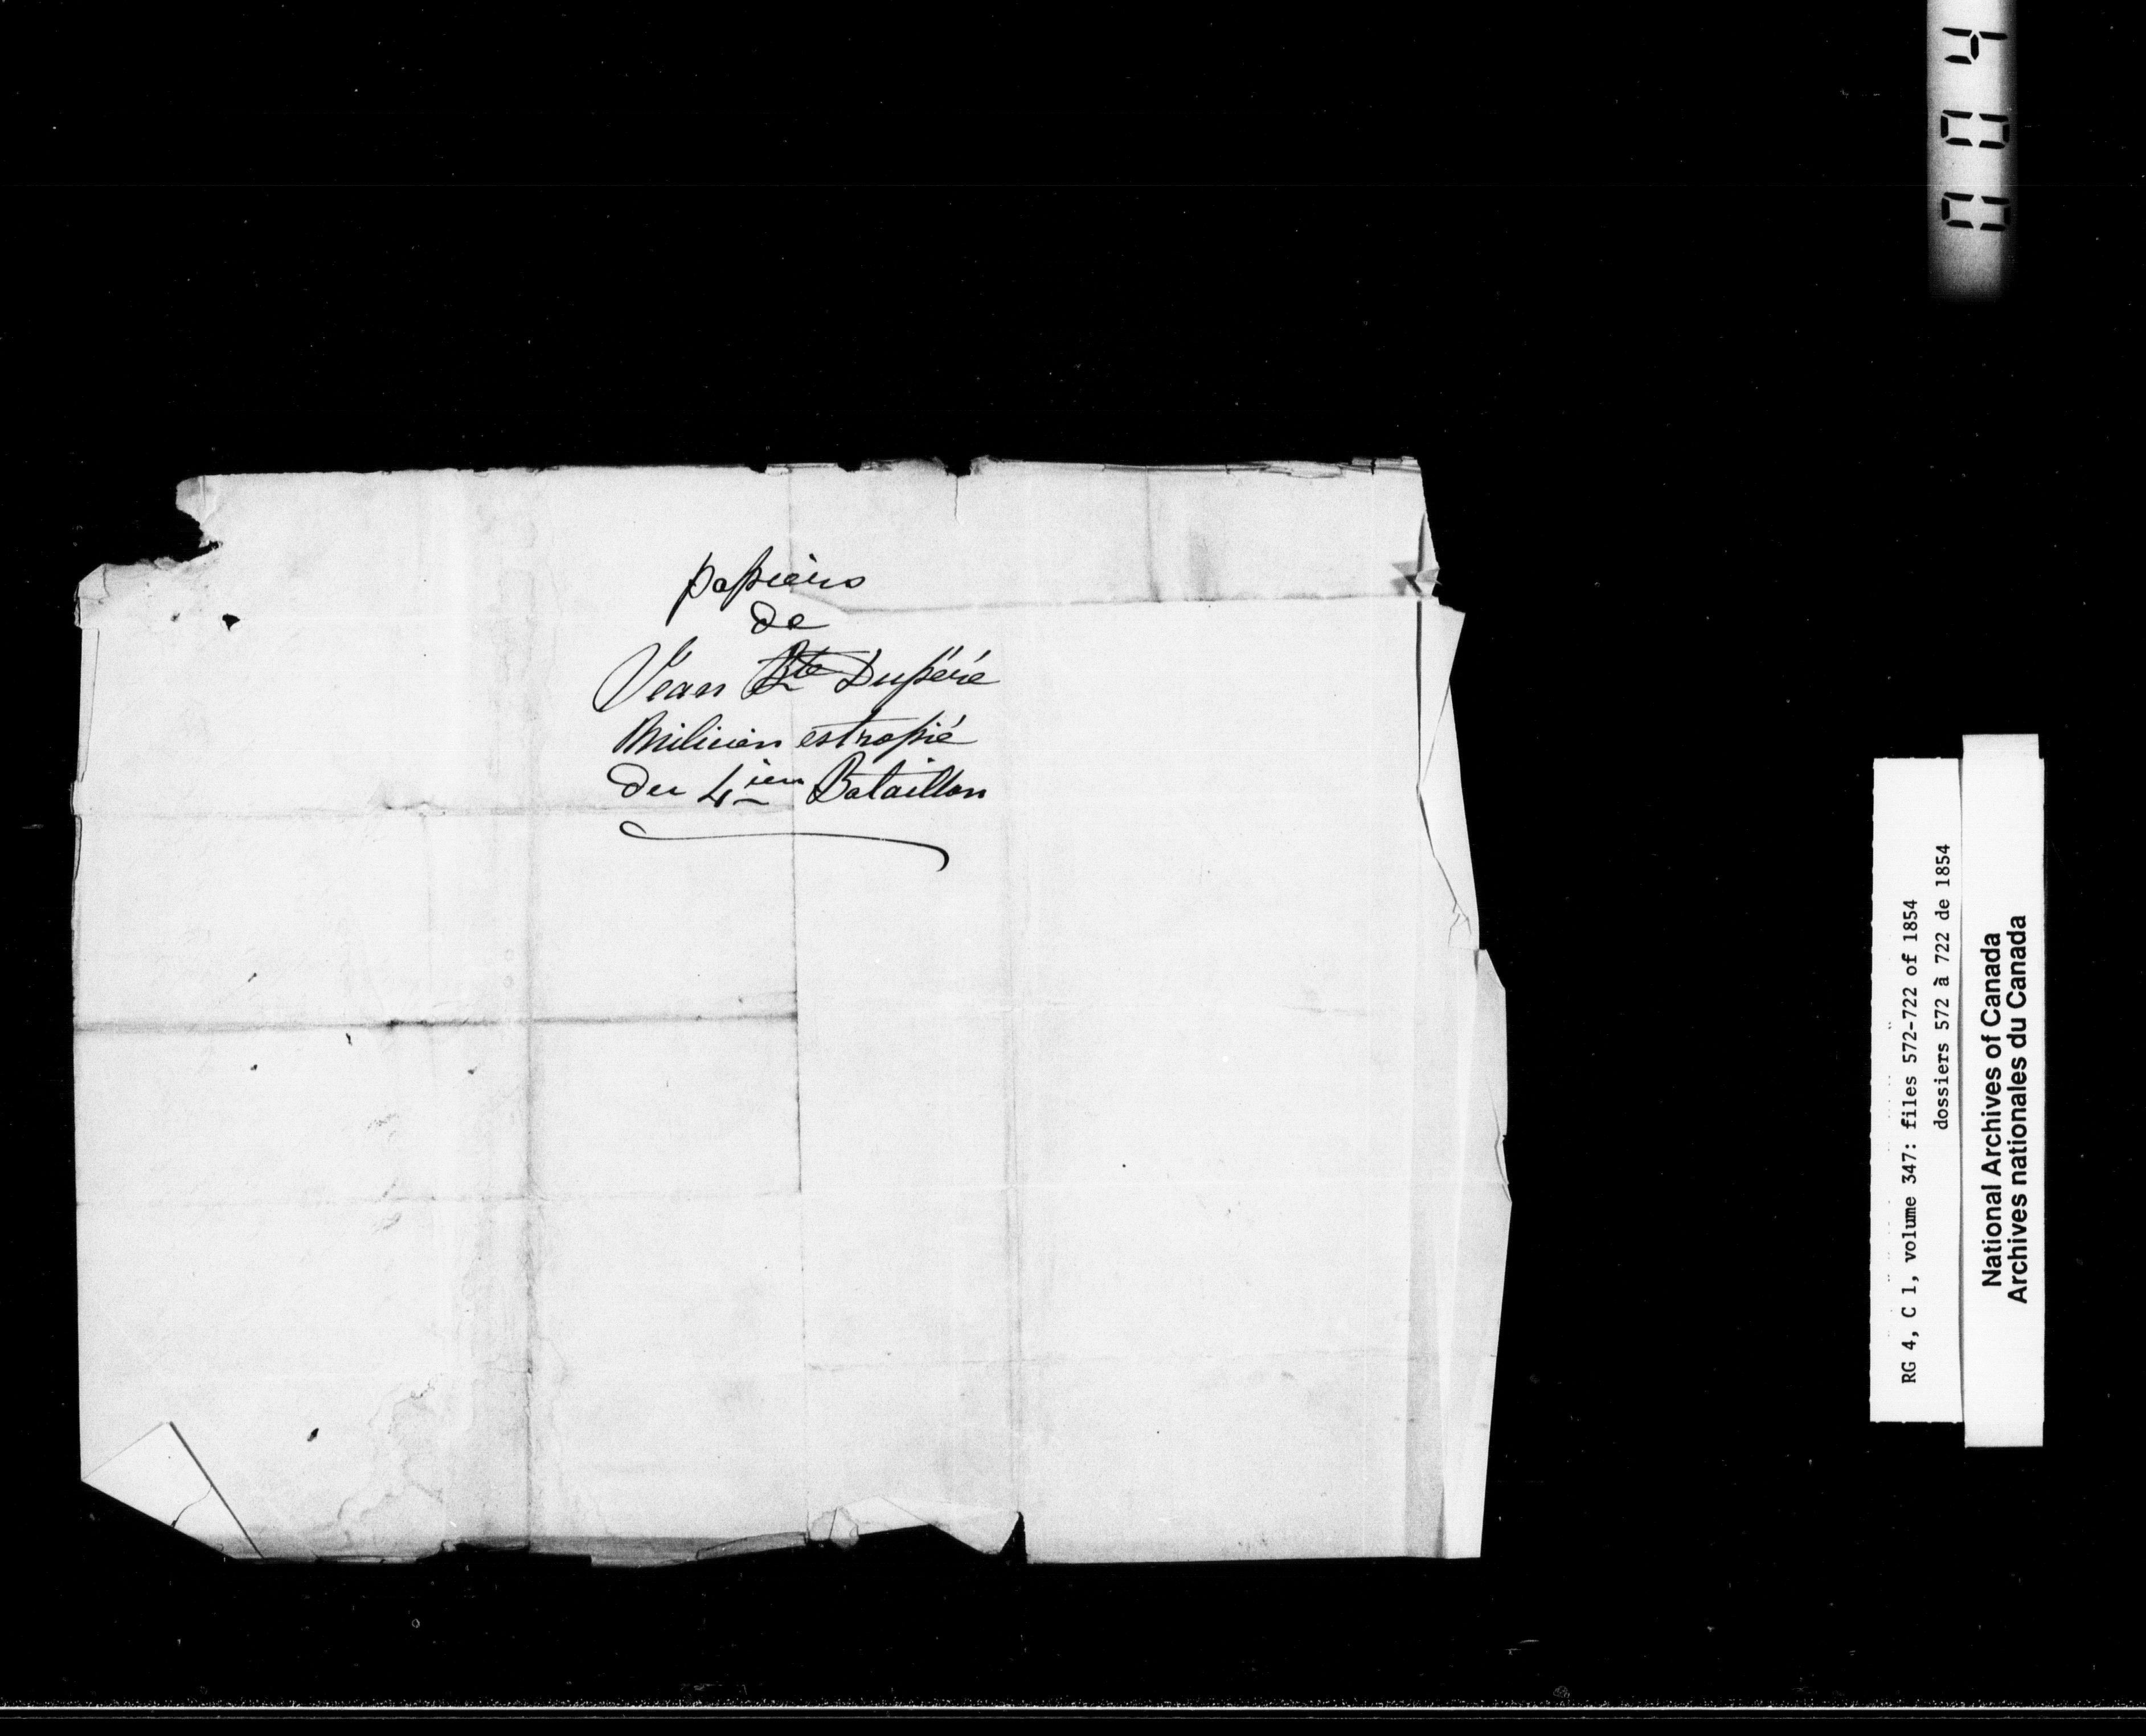 papiers
de
Jean Bte Dupéré
Milicien estropié
du 4ien Bataillon
RG 4, C 1, volume 347: files 572-722 of 1854
dossiers 572 à 722 de 1854
National Archives of Canada
Archives nationales du Canada